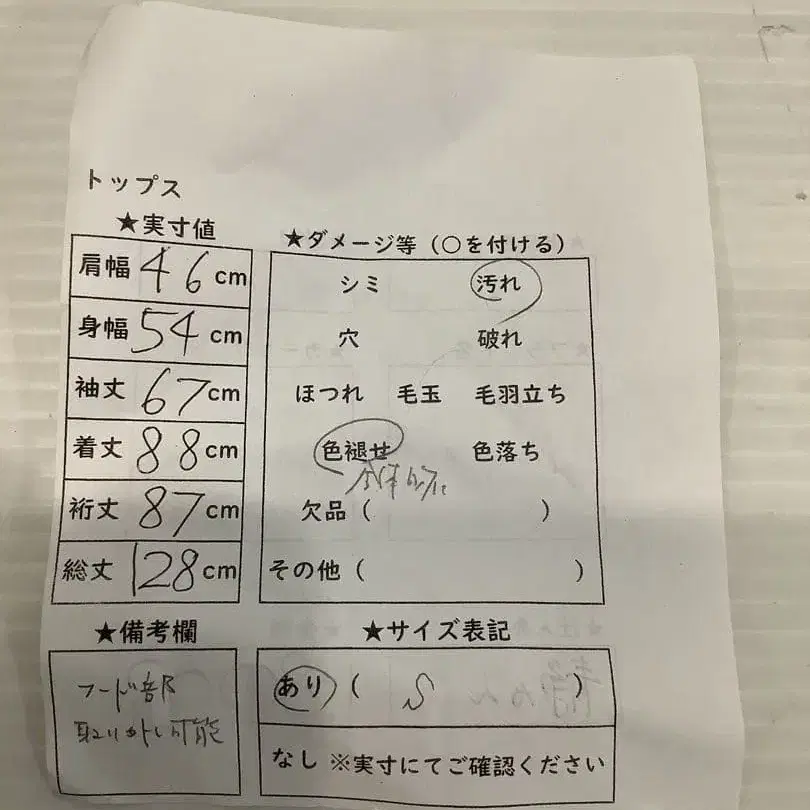 トップス
★実寸値
肩幅 46 cm
身幅 54 cm
袖丈 67 cm
着丈 88 cm
裄丈 87 cm
総丈 128 cm
★ダメージ等（○を付ける）
シミ 汚れ
穴 破れ
ほつれ 毛玉 毛羽立ち
色褪せ 色落ち
全体的に
欠品（ ）
その他（ ）
★備考欄
フード部
取り外し可能
★サイズ表記
あり（ S ）
なし ※実寸にてご確認ください